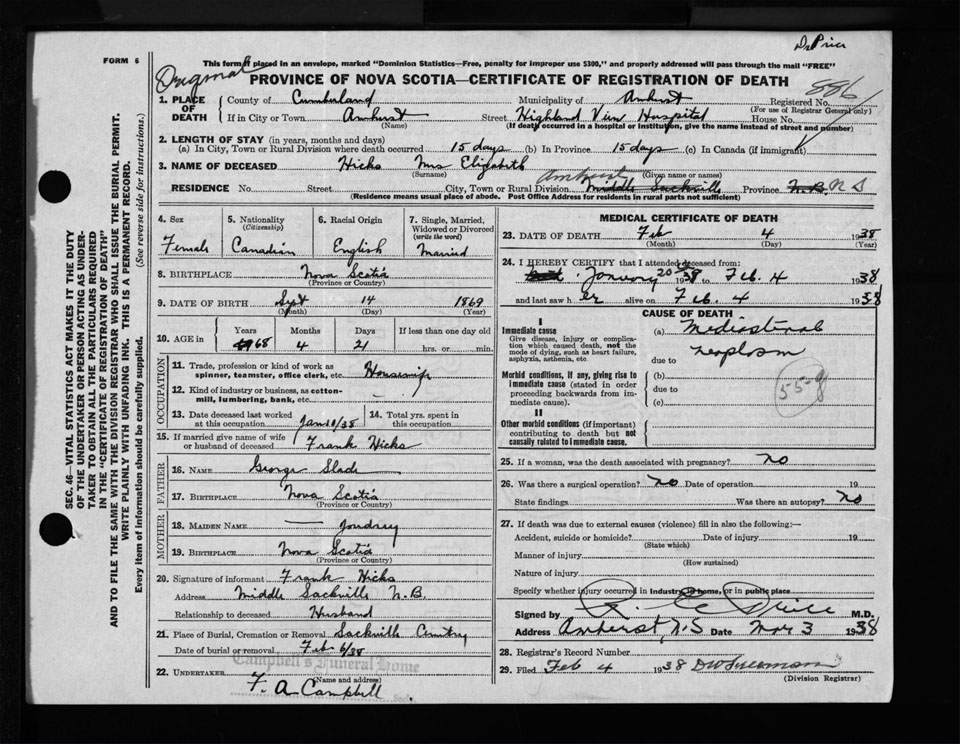 Dr Price
FORM 6
This form if placed in an envelope, marked "Dominion Statistics—Free, penalty for improper use $300," and properly addressed will pass through the mail "FREE"
Original
PROVINCE OF NOVA SCOTIA—CERTIFICATE OF REGISTRATION OF DEATH
886
1. PLACE OF DEATH
County of Cumberland Municipality of Amherst Registered No.
(For use of Registrar General only)
If in City or Town Amherst Street Highland View Hospital House No.
(Name) (If death occurred in a hospital or institution, give the name instead of street and number)
2. LENGTH OF STAY (in years, months and days)
(a) In City, Town or Rural Division where death occurred 15 days (b) In Province 15 days (c) In Canada (if immigrant)
3. NAME OF DECEASED Hicks Mrs Elizabeth
(Surname) (Given name or names)
Amherst
RESIDENCE No. Street City, Town or Rural Division Middle Sackville Province N.B. N S
(Residence means usual place of abode. Post Office Address for residents in rural parts not sufficient)
4. Sex
Female
5. Nationality
(Citizenship)
Canadian
6. Racial Origin
English
7. Single, Married, Widowed or Divorced
(write the word)
Married
8. BIRTHPLACE Nova Scotia
(Province or Country)
9. DATE OF BIRTH Sept 14 1869
(Month) (Day) (Year)
10. AGE in
Years Months Days If less than one day old
68 4 21 hrs. or min.
OCCUPATION
11. Trade, profession or kind of work as
spinner, teamster, office clerk, etc. Housewife
12. Kind of industry or business, as cotton-
mill, lumbering, bank, etc.
13. Date deceased last worked
at this occupation Jan 10/38
14. Total yrs. spent in
this occupation
15. If married give name of wife
or husband of deceased Frank Hicks
FATHER
16. NAME George Slade
17. BIRTHPLACE Nova Scotia
(Province or Country)
MOTHER
18. MAIDEN NAME — Joudrey
19. BIRTHPLACE Nova Scotia
(Province or Country)
20. Signature of informant Frank Hicks
Address Middle Sackville N.B.
Relationship to deceased Husband
21. Place of Burial, Cremation or Removal Sackville Cemetery
Date of burial or removal Feb 6/38
Campbell's Funeral Home
22. UNDERTAKER
(Name and address)
F. A Campbell
MEDICAL CERTIFICATE OF DEATH
23. DATE OF DEATH Feb 4 1938
(Month) (Day) (Year)
24. I HEREBY CERTIFY that I attended deceased from:
January 20 1938 to Feb. 4 1938
and last saw her alive on Feb. 4 1938
CAUSE OF DEATH
I
Immediate cause
Give disease, injury or complica-
tion which caused death, not the
mode of dying, such as heart failure,
asphyxia, asthenia, etc.
(a) Mediastinal
due to neoplasm
Morbid conditions, if any, giving rise to
immediate cause (stated in order
proceeding backwards from im-
mediate cause).
(b)
due to
(c)
55-g
II
Other morbid conditions (if important)
contributing to death but not
causally related to immediate cause.
25. If a woman, was the death associated with pregnancy? no
26. Was there a surgical operation? no Date of operation 19
State findings Was there an autopsy? no
27. If death was due to external causes (violence) fill in also the following:—
Accident, suicide or homicide? Date of injury 19
(State which)
Manner of injury
(How sustained)
Nature of injury
Specify whether injury occurred in industry, in home, or in public place
Signed by Price M.D.
Address Amherst, N.S Date Mar 3 1938
28. Registrar's Record Number
29. Filed Feb 4 1938
(Division Registrar)
SEC. 46—VITAL STATISTICS ACT MAKES IT THE DUTY
OF THE UNDERTAKER OR PERSON ACTING AS UNDER-
TAKER TO OBTAIN ALL THE PARTICULARS REQUIRED
IN THE "CERTIFICATE OF REGISTRATION OF DEATH"
AND TO FILE THE SAME WITH THE DIVISION REGISTRAR WHO SHALL ISSUE THE BURIAL PERMIT.
WRITE PLAINLY WITH UNFADING INK. THIS IS A PERMANENT RECORD.
Every item of information should be carefully supplied. (See reverse side for instructions.)